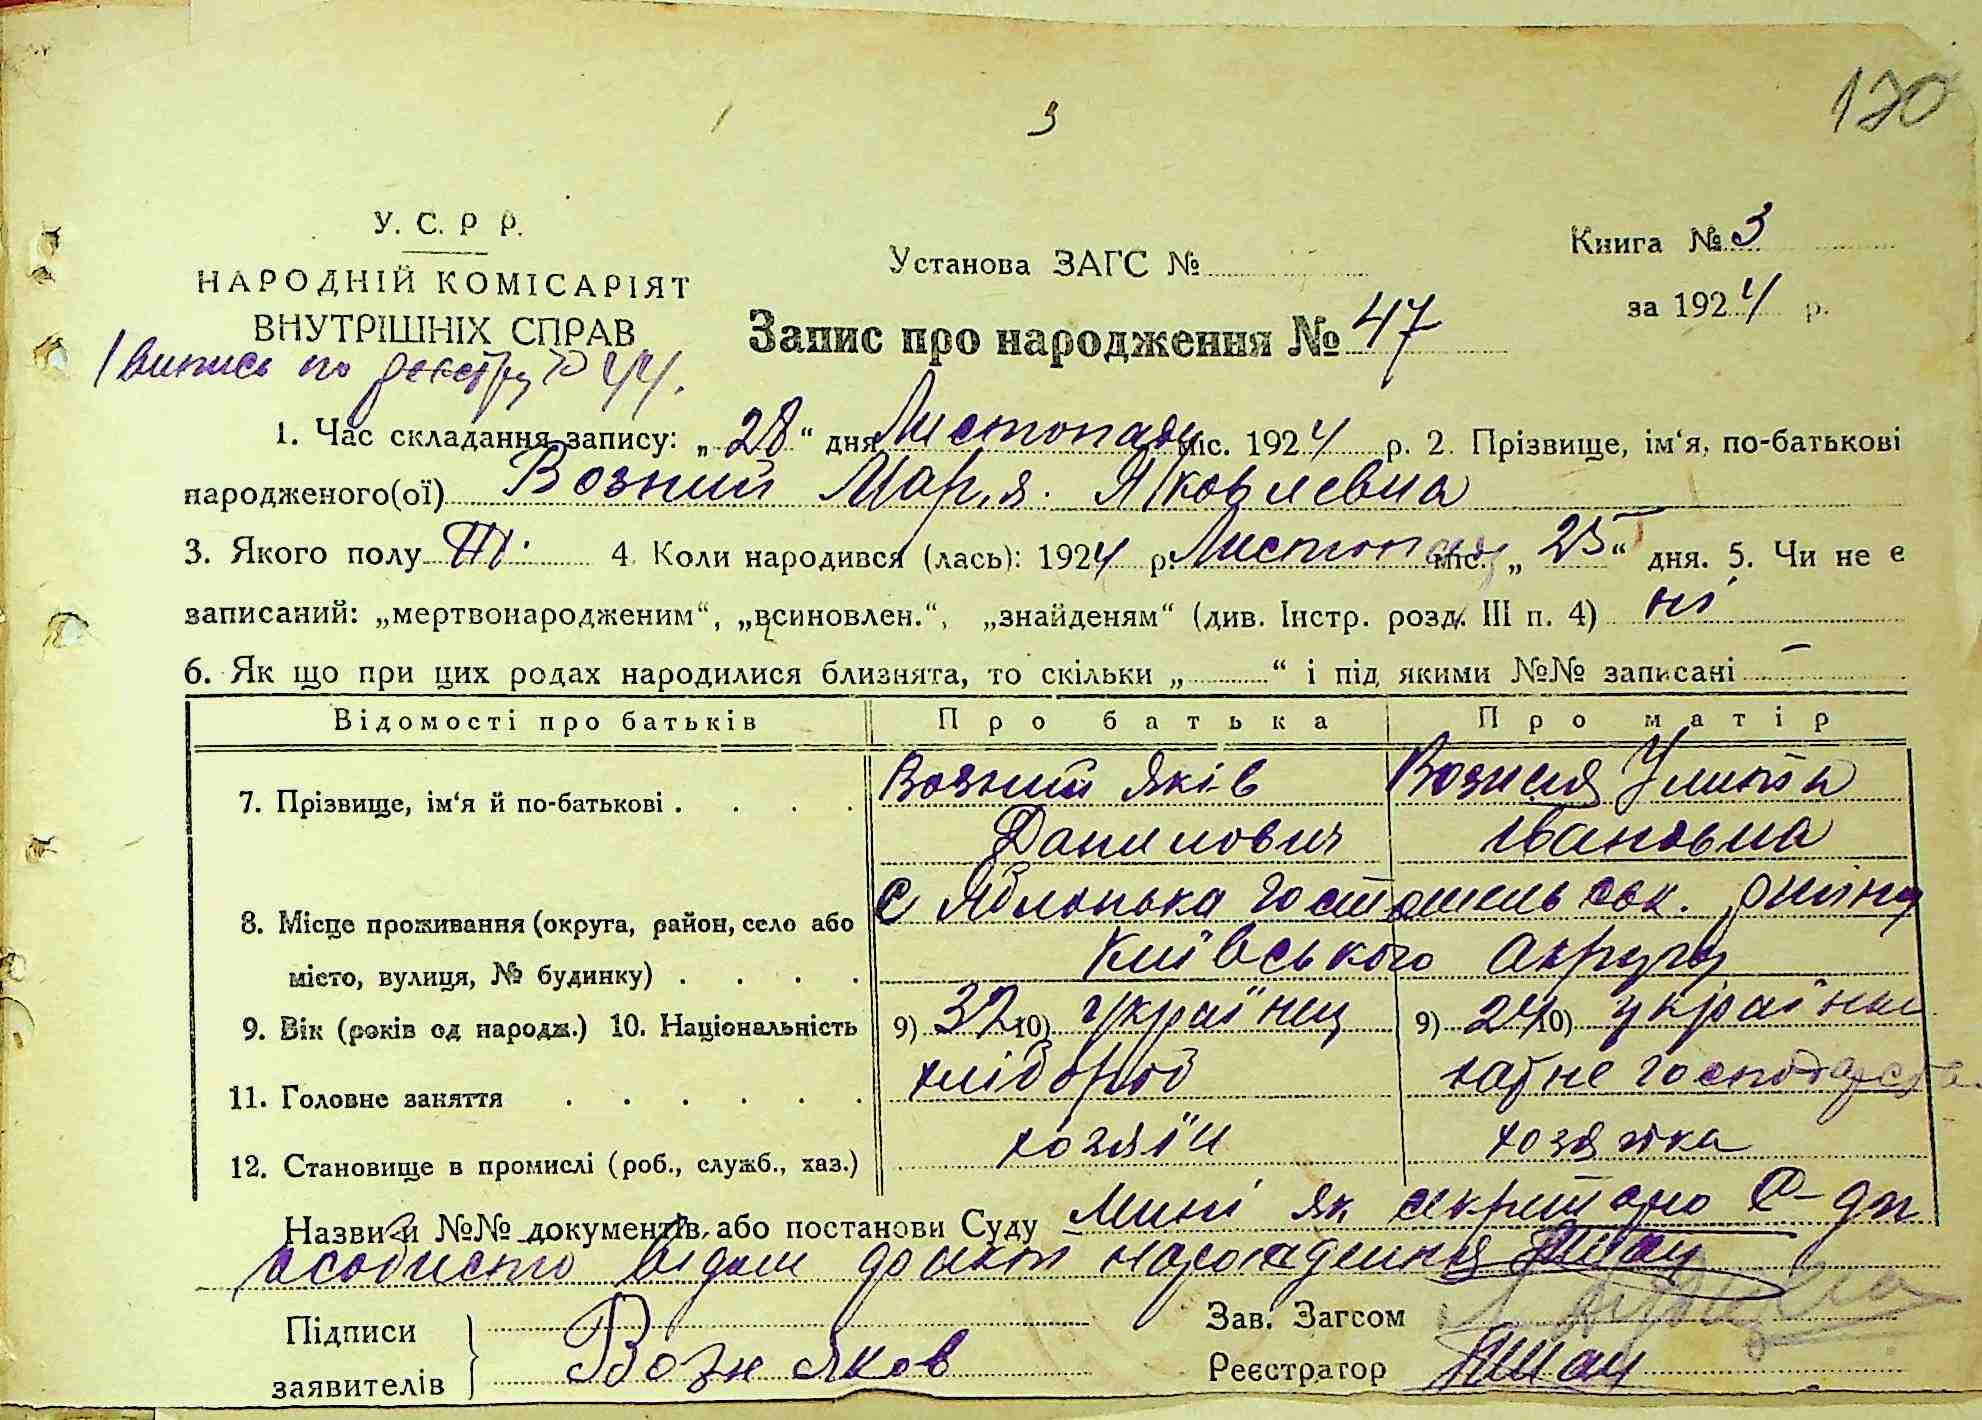 120
3
У. С. Р Р.
НАРОДНІЙ КОМІСАРІЯТ
ВНУТРІШНІХ СПРАВ
Установа ЗАГС №
Книга № 3
за 1924 р.
Запис про народження № 47
1 випись по реєстру № 44.
1. Час складання запису: „28“ дня Листопаду міс. 1924 р. 2. Прізвище, ім‘я, по-батькові
народженого(ої) Возний Марія Яковлевна
3. Якого полу Ж. 4. Коли народився (лась): 1924 р. Листопад міс. „25“ дня. 5. Чи не є
записаний: „мертвонародженим“, „всиновлен.“, „знайденям“ (див. Інстр. розд. III п. 4) ні
6. Як що при цих родах народилися близнята, то скільки „ “ і під якими №№ записані —
Відомості про батьків Про батька Про матір
7. Прізвище, ім‘я й по-батькові . . . . Возний Яків Возная Улита
Данилович Івановна
8. Місце проживання (округа, район, село або С Яблонька Гостомельськ. району
місто, вулиця, № будинку) . . . . Київського округу
9. Вік (років од народж.) 10. Національність 9) 32 10) українец 9) 24 10) українка
11. Головне заняття . . . . . . хлібороб хатне господарство
12. Становище в промислі (роб., служб., хаз.) хозяїн хозяйка
Назви й №№ документів, або постанови Суду Мині як секритарю С-ди
особисто відом факт народження
Підписи
заявителів Возн Яков
Зав. Загсом
Реєстратор